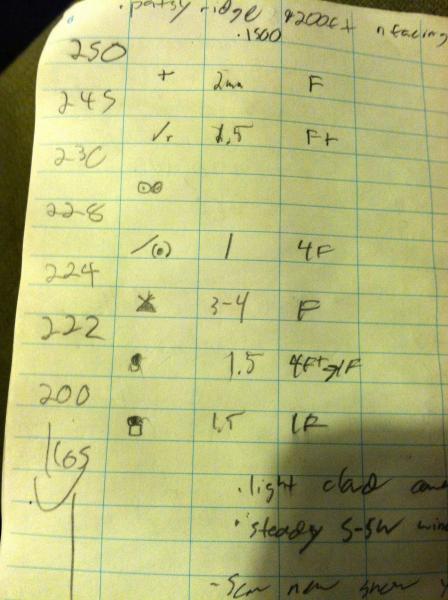 . patsy ridge 4200ft n facing
. 1500
250
+ 2mm F
245
1.5 F+
230
228
/ 1 4F
224
3-4 F
222
1.5 4F+→1F
200
1.5 1F
165
. light cloud
. steady S-SW
- 5cm new snow